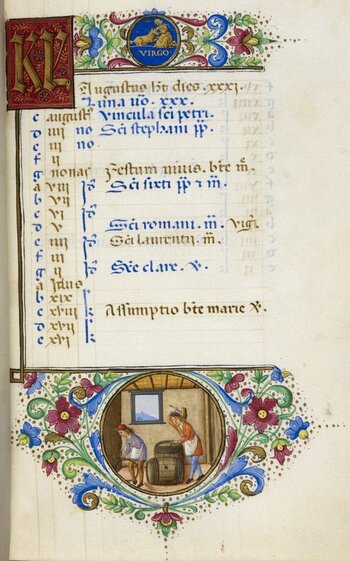 VIRGO
KL
Augustus ht dies .xxxi.
Luna vo .xxx.
c august⁹ Vincula sci petri.
d iiii no Sci stephani pp.
e iii no.
f ii
g nonas Festum niuis. bte m̄.
a viii id Sci sixti pp ⁊ m̄.
b vii
c vi id
d v Sci romani. m̄. vigi.
e iiii Sci laurentii. m̄.
f iii id
g ii Scē clare. v.
a idus
b xix k
c xviii k Assumptio bte marie v.
d xvii k
e xvi k